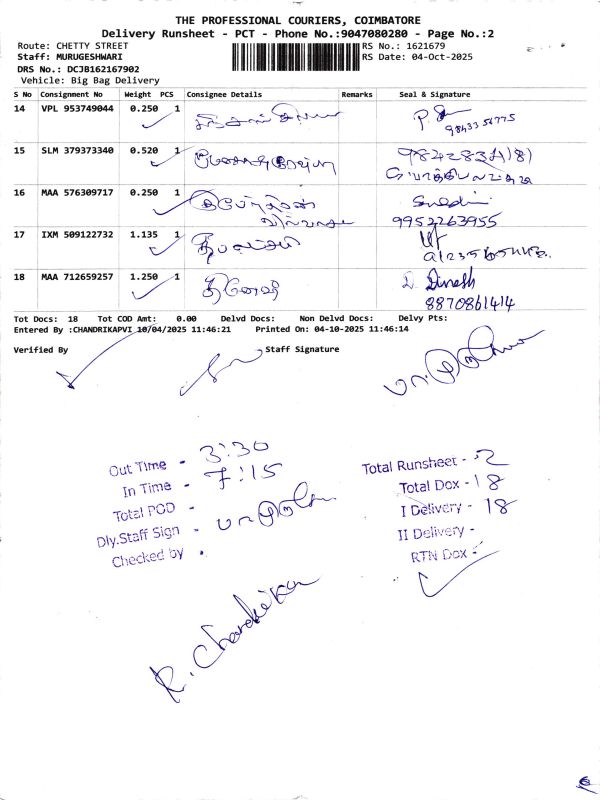 THE PROFESSIONAL COURIERS, COIMBATORE
Delivery Runsheet - PCT - Phone No.:9047080280 - Page No.:2
Route: CHETTY STREET
RS No.: 1621679
Staff: MURUGESHWARI
RS Date: 04-Oct-2025
DRS No.: DCJB162167902
Vehicle: Big Bag Delivery
S No Consignment No Weight PCS Consignee Details Remarks Seal & Signature
14 VPL 953749044 0.250 1
9843356775
15 SLM 379373340 0.520 1
16 MAA 576309717 0.250 1
9952263955
17 IXM 509122732 1.135 1
18 MAA 712659257 1.250 1 தினேஷ் D. Dinesh
8870861414
Tot Docs: 18 Tot COD Amt: 0.00 Delvd Docs: Non Delvd Docs: Delvy Pts:
Entered By :CHANDRIKAPVI 10/04/2025 11:46:21 Printed On: 04-10-2025 11:46:14
Verified By Staff Signature
Out Time - 3:30
In Time - 7:15
Total POD -
Dly.Staff Sign -
Checked by .
Total Runsheet - 2
Total Dox - 18
I Delivery - 18
II Delivery -
RTN Dox -
R. Chandrika